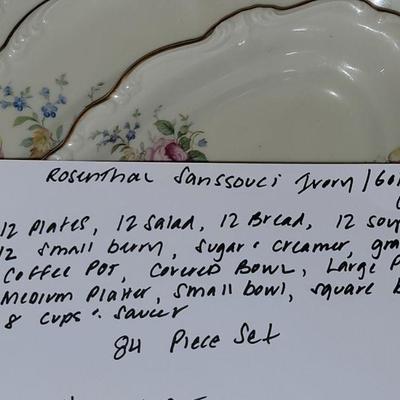 Rosenthal Sanssouci Ivory / Gol
12 Plates, 12 Salad, 12 Bread, 12 soup
12 small berry, sugar & creamer, gra
Coffee Pot, Covered Bowl, Large P
Medium Platter, small bowl, square b
8 cups & saucer
84 Piece Set